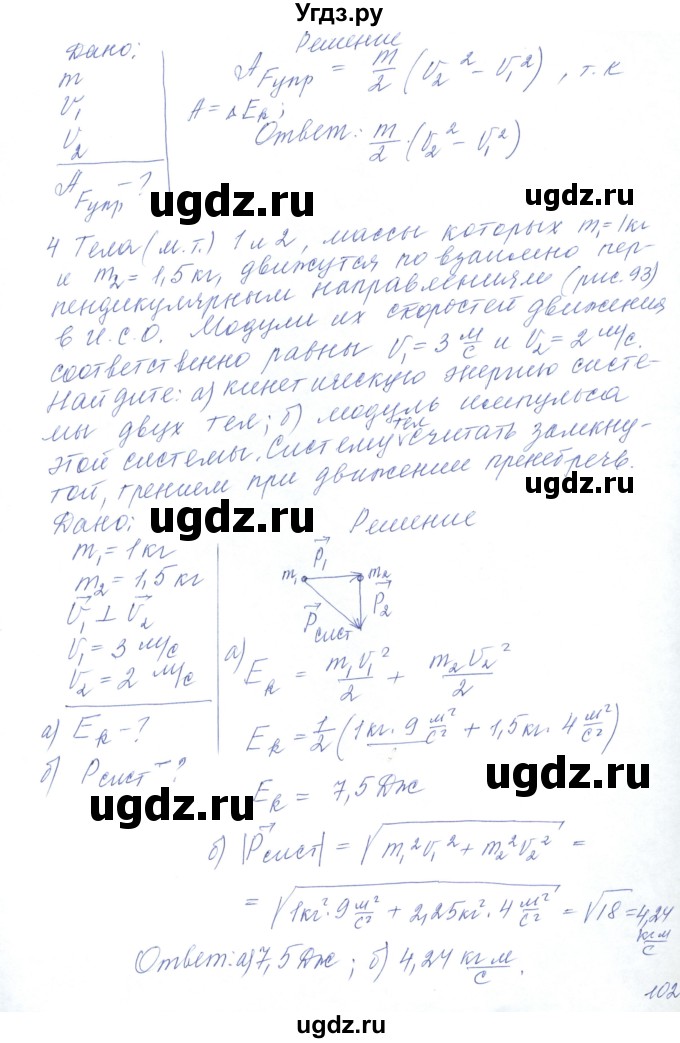 Угдз.ру
Дано: Решение
m
v₁
v₂
A_Fупр = m/2 (v₂² - v₁²), т.к
A = ΔE_k;
Ответ: m/2 · (v₂² - v₁²)
A_Fупр - ?
ugdz.ru ugdz.ru
4 Тела (м.т.) 1 и 2, массы которых m₁ = 1кг
и m₂ = 1,5кг, движутся по взаимно пер-
пендикулярным направлениям (рис. 93)
в И.С.О. Модули их скоростей движения
соответственно равны v₁ = 3 м/с и v₂ = 2 м/с.
Найдите: а) кинетическую энергию систе-
мы двух тел; б) модуль импульса
этой системы. Систему тел считать замкну-
той, трением при движении пренебречь.
ugdz.ru ugdz.ru
Дано: Решение
m₁ = 1кг
m₂ = 1,5 кг
v₁ ⊥ v₂
v₁ = 3 м/с
v₂ = 2 м/с
а) E_k - ?
б) P_сист - ?
P₁
m₁ m₂
P₂
P_сист
а) E_k = m₁v₁²/2 + m₂v₂²/2
E_k = 1/2 (1кг · 9 м²/с² + 1,5кг · 4 м²/с²)
E_k = 7,5 Дж
ugdz.ru ugdz.ru
б) |P_сист| = √(m₁²v₁² + m₂²v₂²) =
= √(1кг² · 9 м²/с² + 2,25кг² · 4 м²/с²) = √18 = 4,24 кг·м/с
Ответ: а) 7,5 Дж; б) 4,24 кг м/с.
102
ugdz.ru